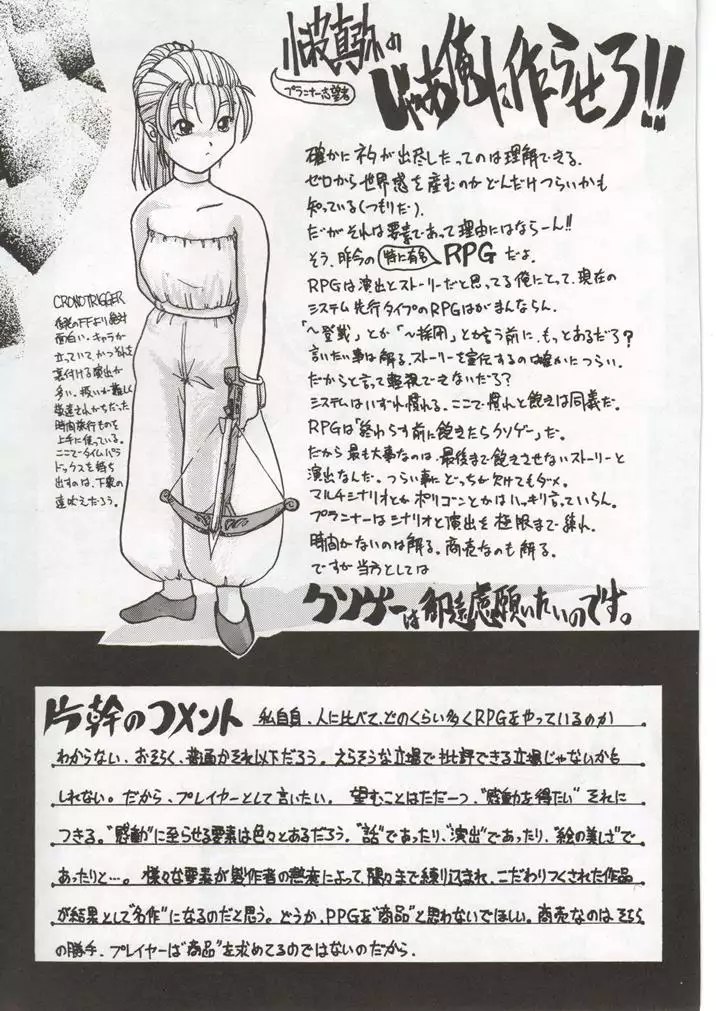 小波真弥の
じゃあ俺に作らせろ!!
プランナー志望者
確かにネタが出尽したってのは理解できる。
ゼロから世界感を産むのがどんだけつらいかも
知っている(つもりだ)。
だがそれは要素であって理由にはならーん!!
そう、昨今の(特に有名)RPGだよ。
RPGは演出とストーリーだと思ってる俺にとって、現在の
システム先行タイプのRPGはがまんならん。
「〜登載」とか「〜採用」とか言う前に、もっとあるだろ?
言いたい事は解る。ストーリーを宣伝するのは確かにつらい。
だからと言って軽視できないだろ?
システムはいずれ慣れる。ここで慣れと飽きは同義だ。
RPGは「終わらす前に飽きたらクソゲー」だ。
だから最も大事なのは、最後まで飽きさせないストーリーと
演出なんだ。つらい事にどっちが欠けてもダメ。
マルチシナリオとかポリゴンとかはハッキリ言っていらん。
プランナーはシナリオと演出を極限まで練れ。
時間がないのは解る。商売なのも解る。
ですが当方としては
クソゲーは御遠慮願いたいのです。
CRONOTRIGGER
面白い。キャラが
立っていて、かつ
裏付ける演出が
多い。扱いが難しく
敬遠されがちだった
時間旅行ものを
上手に使っている。
ここでタイムパラ
ドックスを持ち
出すのは、下衆の
遠吠えだろう。
片幹のコメント
私自身、人に比べて、どのくらい多くRPGをやっているのか
わからない。おそらく、普通かそれ以下だろう。えらそうな立場で批評できる立場じゃないかも
しれない。だから、プレイヤーとして言いたい。望むことはただ一つ、"感動を得たい"それに
つきる。"感動"に至らせる要素は色々とあるだろう。"話"であったり、"演出"であったり、"絵の美しさ"で
あったりと…。様々な要素が製作者の熱意によって、隅々まで練り込まれ、こだわりつくされた作品
が結果として"名作"になるのだと思う。どうか、RPGを"商品"と思わないでほしい。商売なのはそちら
の勝手、プレイヤーは"商品"を求めてるのではないのだから。